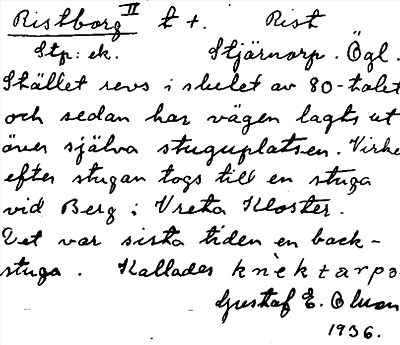 Ristborg II t +. Rist
Stp: ek. Stjärnorp. Ögl.
Stället revs i slutet av 80-talet
och sedan har vägen lagts ut
över själva stuguplatsen. Virke
efter stugan togs till en stuga
vid Berg i Vreta Kloster.
Det var sista tiden en back-
stuga. Kallades knèktarpo
Gustaf E. Olson
1936.